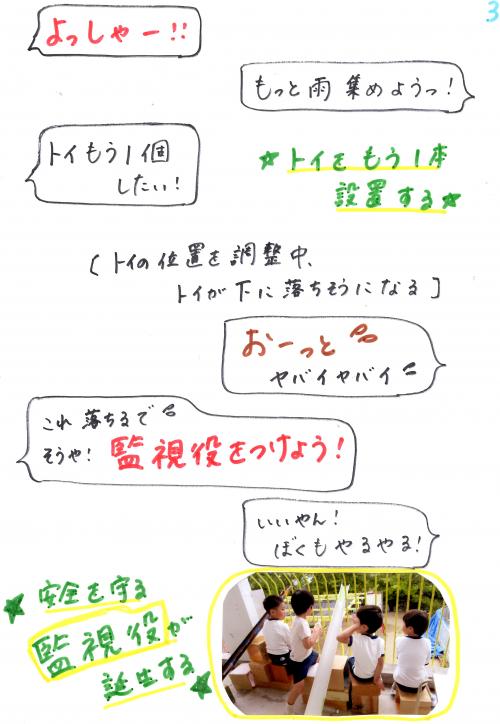 3
よっしゃー!!
もっと雨集めようっ!
トイもう1個
したい!
★トイをもう1本
設置する★
(トイの位置を調整中、
トイが下に落ちそうになる]
おーっと
ヤバイヤバイ
これ落ちるで
そうや!監視役をつけよう!
いいやん!
ぼくもやるやる!
★安全を守る
監視役が
誕生する★